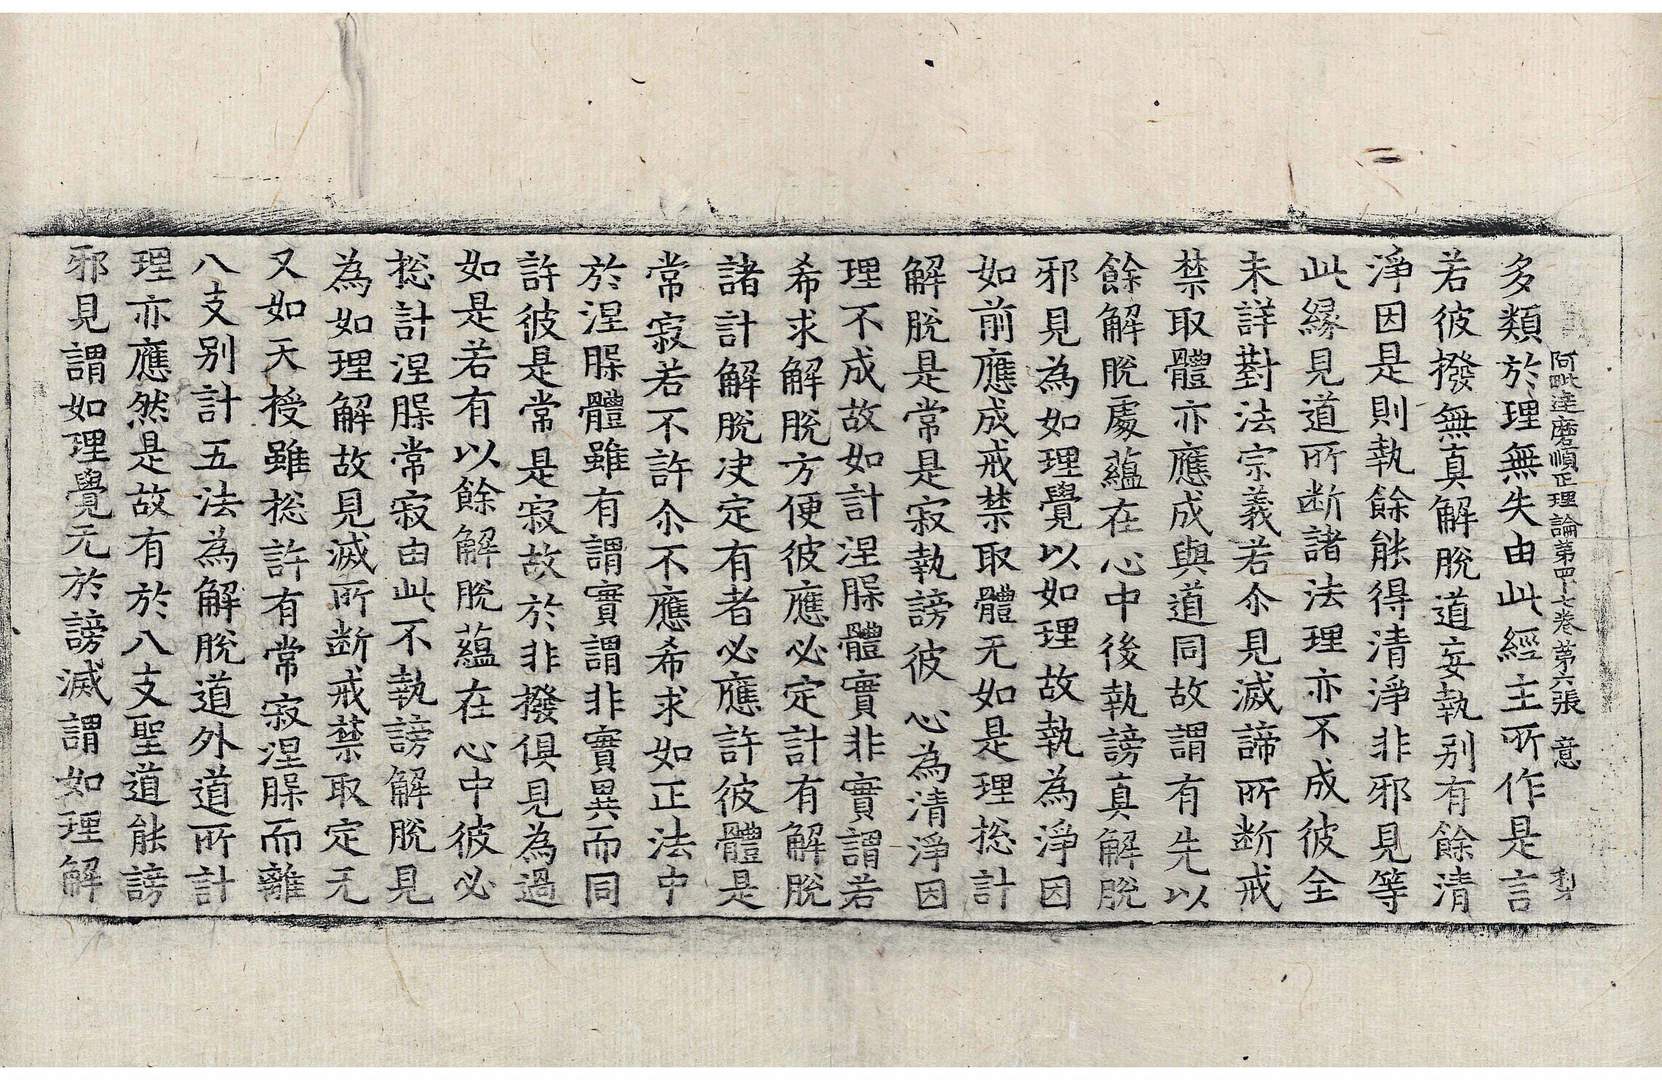 阿毗達磨順正理論第四十七卷 第六張 意
多類於理無失由此經主所作是言
若彼撥無真解脫道妄執別有餘清
淨因是則執餘能得清淨非邪見等
此緣見道所斷諸法理亦不成彼全
未詳對法宗義若尒見滅諦所斷戒
禁取體亦應成與道同故謂有先以
餘解脫處蘊在心中後執謗真解脫
邪見為如理覺以如理故執為淨因
如前應成戒禁取體无如是理捴計
解脫是常是寂執謗彼心為清淨因
理不成故如計涅槃體實非實謂若
希求解脫方便彼應必定計有解脫
諸計解脫決定有者必應許彼體是
常寂若不許尒不應希求如正法中
於涅槃體雖有謂實謂非實異而同
許彼是常是寂故於非撥俱見為過
如是若有以餘解脫蘊在心中彼必
捴計涅槃常寂由此不執謗解脫見
為如理解故見滅所斷戒禁取定无
又如天授雖捴許有常寂涅槃而離
八支别計五法為解脫道外道所計
理亦應然是故有於八支聖道能謗
邪見謂如理覺无於謗滅謂如理解